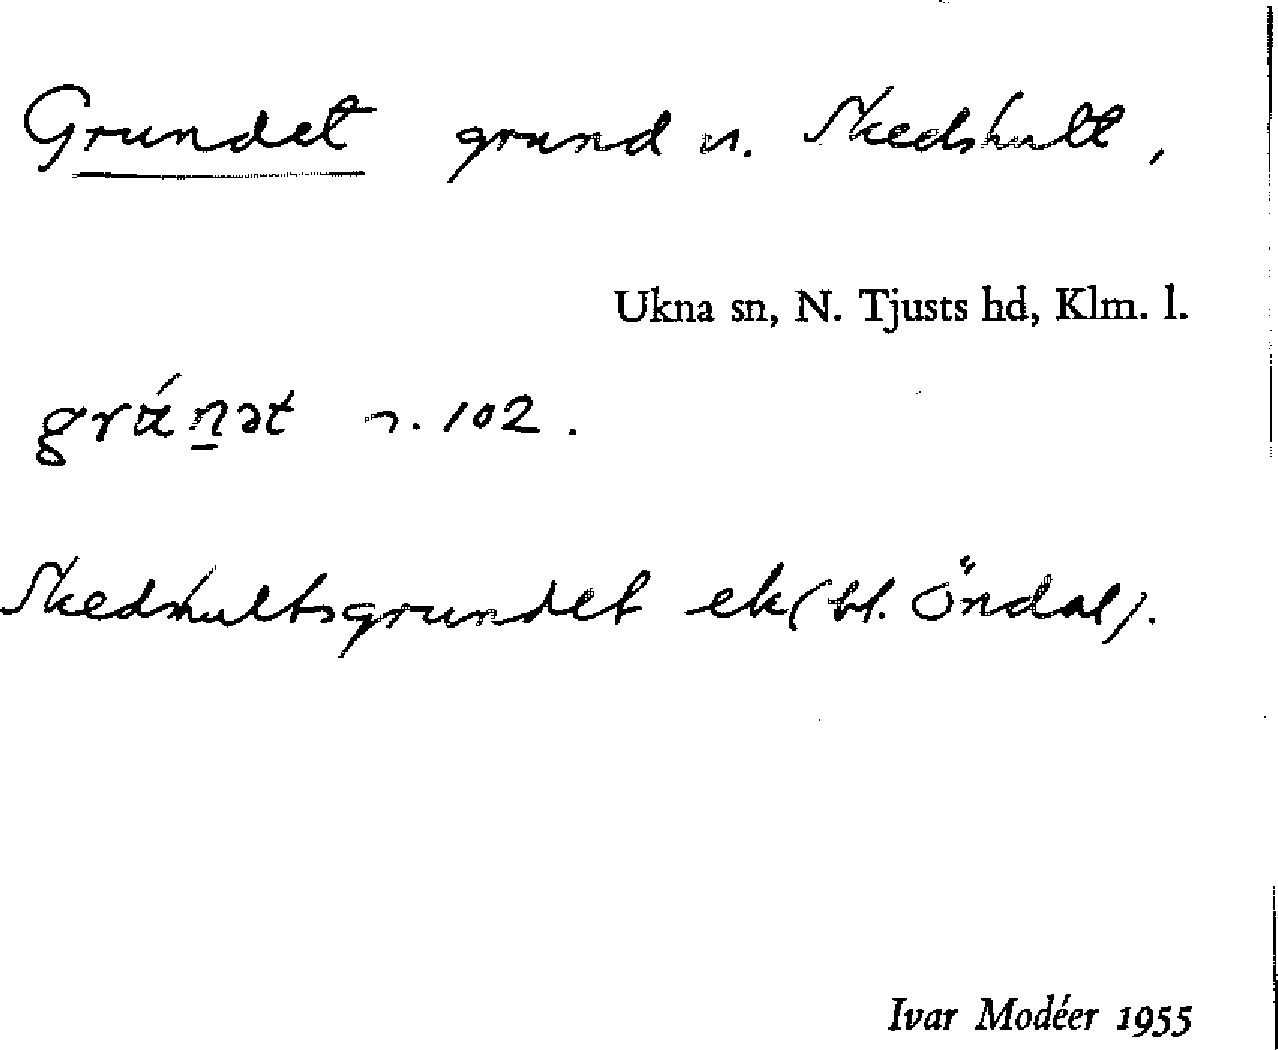 Grundet grund n. Skedshult,
Ukna sn, N. Tjusts hd, Klm. l.
n. 102.
Skedshultsgrundet ek (bl. Öndal).
Ivar Modéer 1955